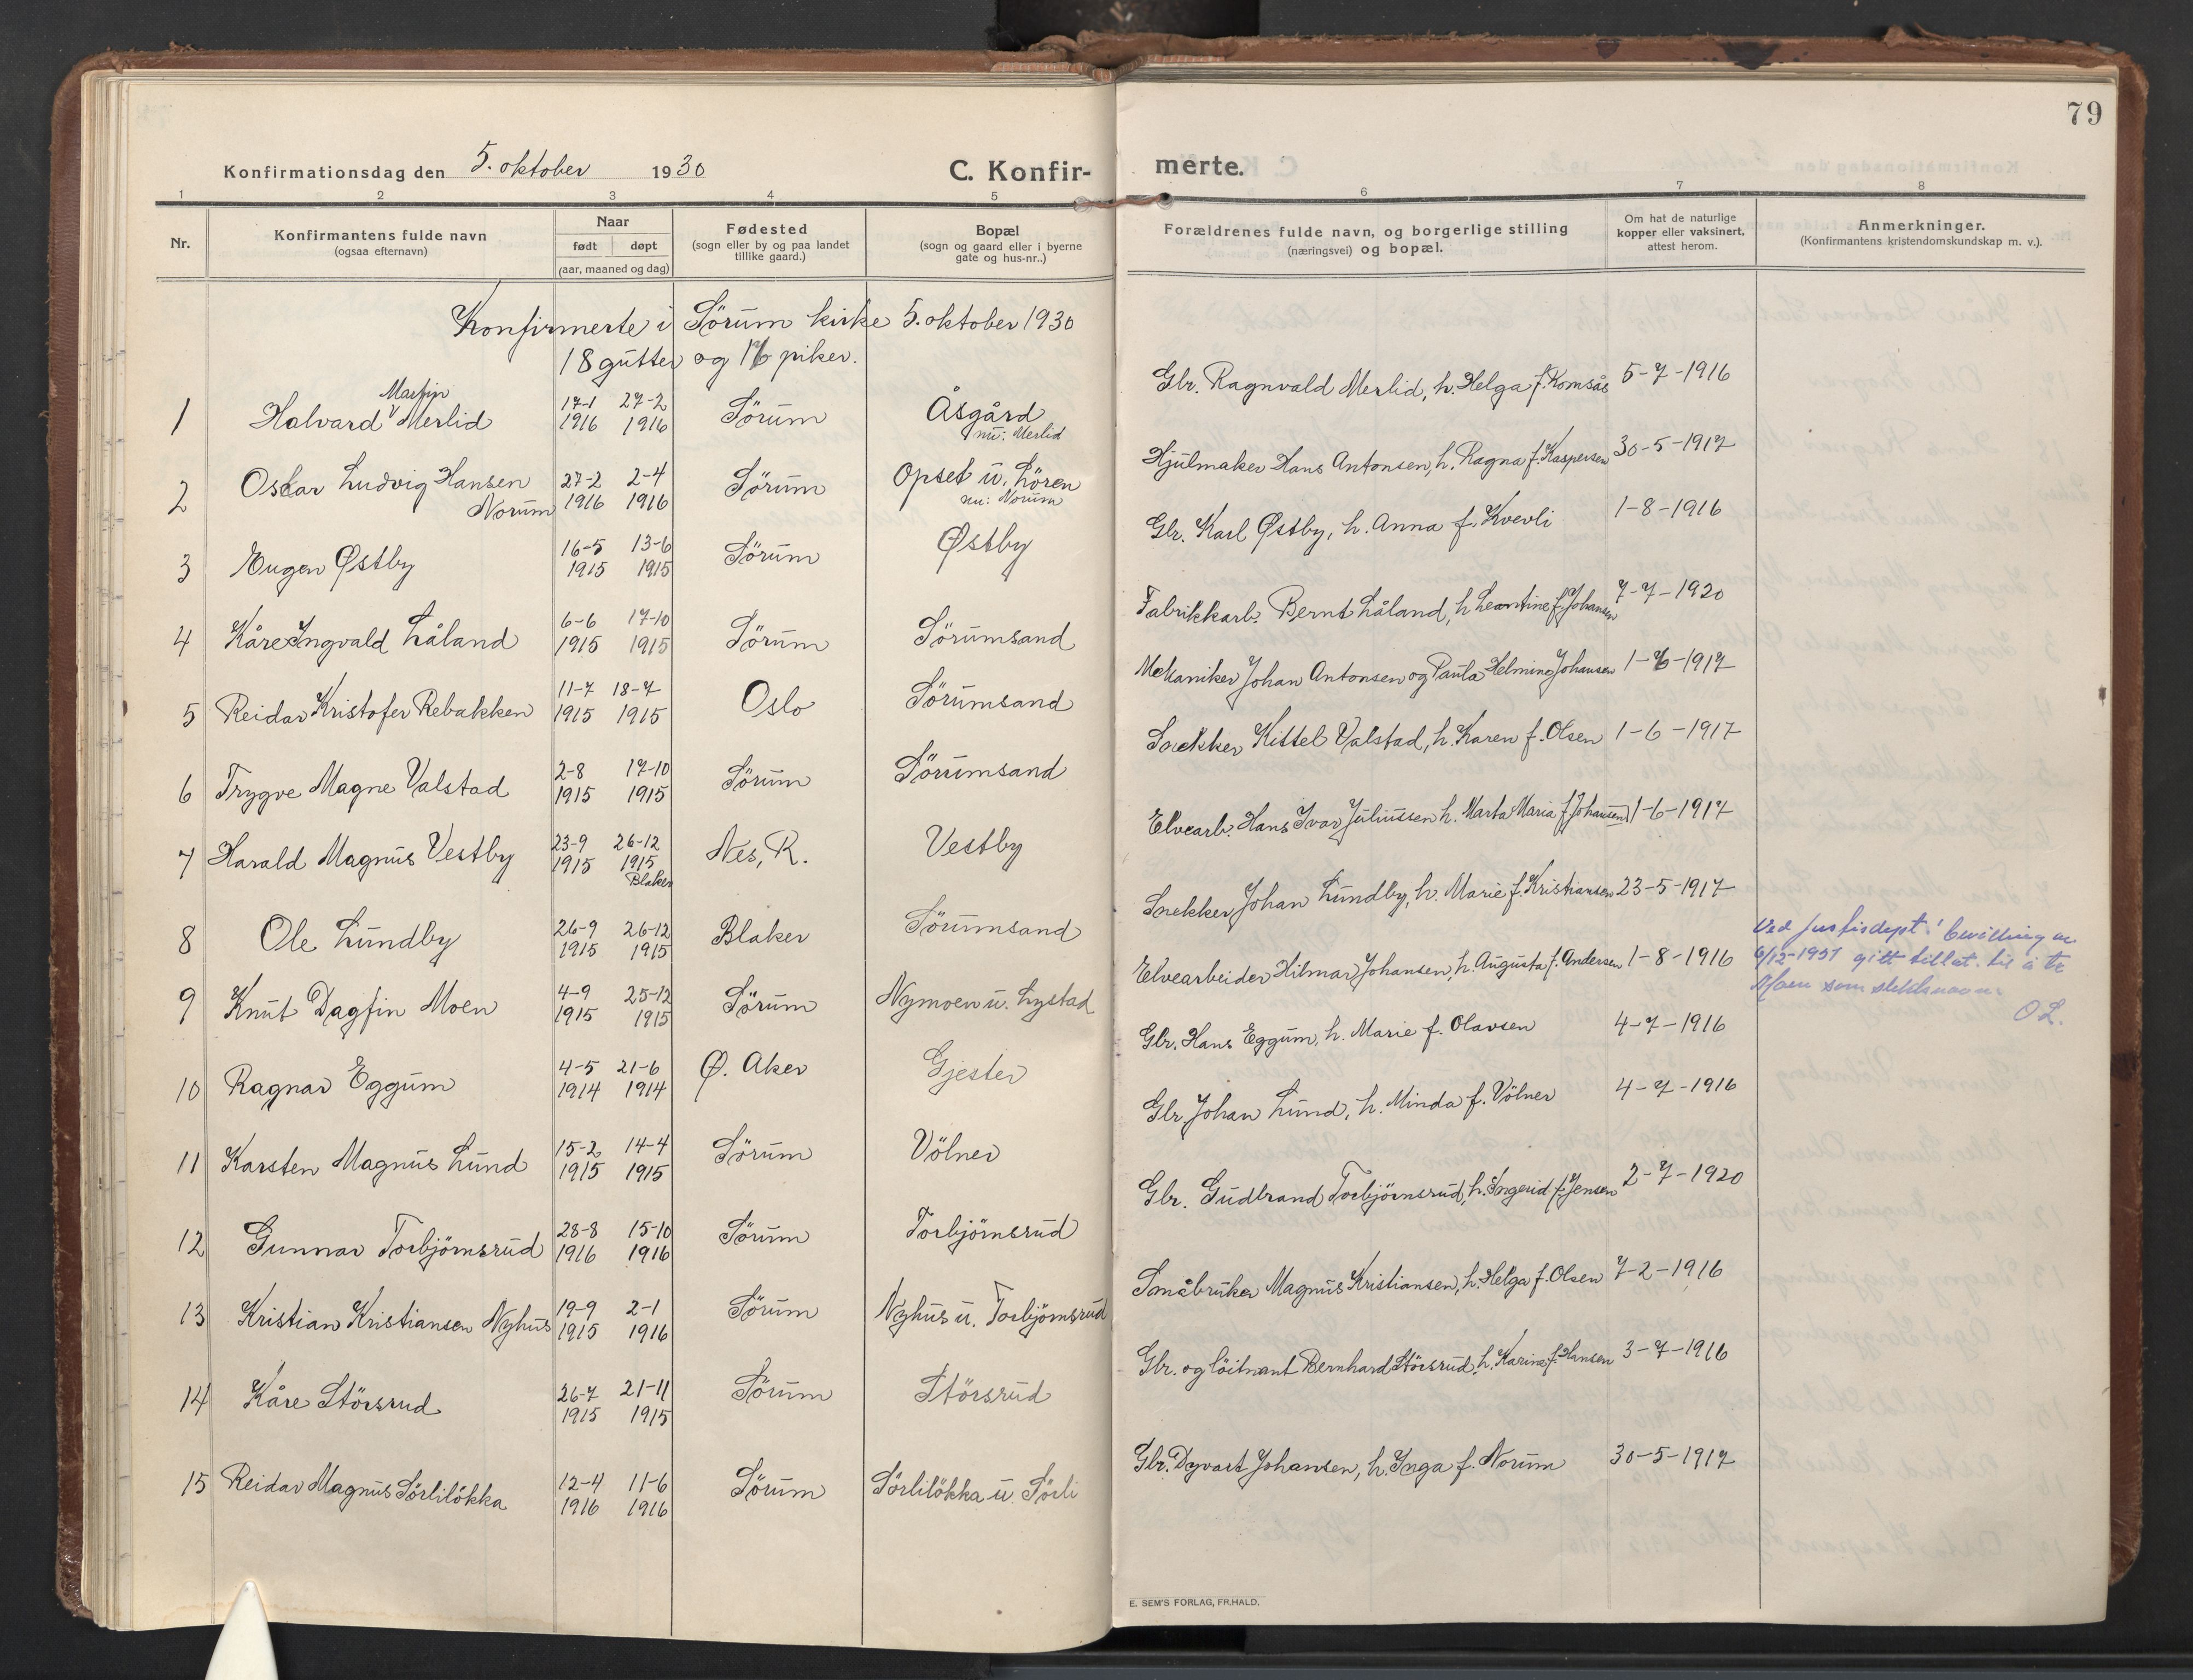 79
Konfirmationsdag den 5. oktober 1930 C. Konfir-
merte.
1 2 3 4 5
6 7 8
Nr.
Konfirmantens fulde navn
(ogsaa efternavn)
Naar
født døpt
(aar, maaned og dag)
Fødested
(sogn eller by og paa landet
tillike gaard.)
Bopæl
(sogn og gaard eller i byerne
gate og hus-nr..)
Forældrenes fulde navn, og borgerlige stilling
(næringsvei) og bopæl.
Om hat de naturlige
kopper eller vaksinert,
attest herom.
Anmerkninger.
(Konfirmantens kristendomskundskap m. v.).
Konfirmerte i Sörum kirke 5. oktober 1930
18 gutter og 16 piker.
Martin
1 Halvard Merlid 17-1 27-2 Sörum Åsgård
1916 1916 nu: Merlid
Glr. Ragnvald Merlid, h. Helga f. Komsås 5-7-1916
2 Oskar Ludvig Hansen 27-2 2-4 Sörum Opset u. Lören
Norum 1916 1916 nu: Norum
Hjulmaker Hans Antonsen, h. Ragna f. Kaspersen 30-5-1917
3 Eugen Østby 16-5 13-6 Sörum Østby
1915 1915
Glr. Karl Østby, h. Anna f. Kvevli 1-8-1916
4 Kåre Ingvald Låland 6-6 17-10 Sörum Sörumsand
1915 1915
Fabrikkarb. Bernt Låland, h Leontine f. Johansen 7-7-1920
5 Reidar Kristofer Rebakken 11-7 18-7 Oslo Sörumsand
1915 1915
Mekaniker Johan Antonsen og Paula Helmine Johansen 1-6-1917
6 Trygve Magne Valstad 2-8 17-10 Sörum Sörumsand
1915 1915
Snekker Kittel Valstad, h. Karen f. Olsen 1-6-1917
7 Harald Magnus Vestby 23-9 26-12 Nes, R. Vestby
1915 1915
Blaker
Elvearb. Hans Ivar Juliussen h. Marta Maria f. Johansen 1-6-1917
8 Ole Lundby 26-9 26-12 Blaker Sörumsand
1915 1915
Snekker Johan Lundby, h. Marie f. Kristiansen 23-5-1917
9 Knut Dagfin Moen 4-9 25-12 Sörum Nymoen u. Lystad
1915 1915
Elvearbeider Hilmar Johansen, h. Augusta f. Andersen 1-8-1916
Ved Justisdept.' bevilling av
6/12-1951 gitt tillat. til å ta
Moen som slektsnavn.
O L.
10 Ragnar Eggum 4-5 21-6 Ø. Aker Gjester
1914 1914
Glr. Hans Eggum, h. Marie f. Olavsen 4-7-1916
11 Karsten Magnus Lund 15-2 14-4 Sörum Völner
1915 1915
Glr. Johan Lund, h. Minda f. Völner 4-7-1916
12 Gunnar Torbjörnsrud 28-8 15-10 Sörum Torbjörnsrud
1916 1916
Glr. Gudbrand Torbjörnsrud, h. Ingerid f. Jensen 2-7-1920
13 Kristian Kristiansen Nyhus 19-9 2-1 Sörum Nyhus u. Torbjörnsrud
1915 1916
Småbruker Magnus Kristiansen, h. Helga f. Olsen 7-2-1916
14 Kåre Störsrud 26-7 21-11 Sörum Störsrud
1915 1915
Glr. og löitnant Bernhard Störsrud, h. Karine f. Hansen 3-7-1916
15 Reidar Magnus Sörlilökka 12-4 11-6 Sörum Sörlilökka u. Sörli
1916 1916
Glr. Dyvart Johansen, h. Inga f. Norum 30-5-1917
E. SEM'S FORLAG, FR.HALD.